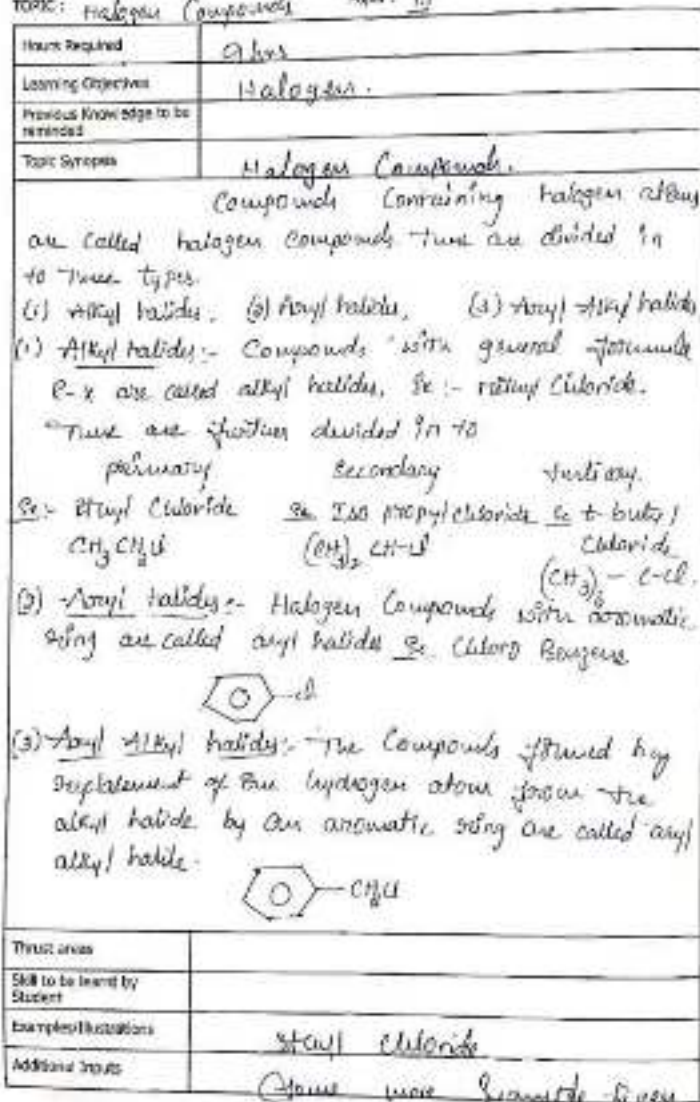 TOPIC: Halogen Compounds
Hours Required 9 hrs
Learning Objectives Halogens.
Previous Knowledge to be
reminded
Topic Synopsis Halogen Compounds.
Compounds Containing halogen atoms
are called halogen compounds. These are divided in
to three types.
(1) Alkyl halides, (2) Aryl halides, (3) Aryl Alkyl halides
(1) Alkyl halides:- Compounds with general formula
R-X are called alkyl halides, Ex:- methyl Chloride.
These are further divided in to
primary Secondary tertiary.
Ex:- Ethyl Chloride Ex Iso propyl chloride Ex t-butyl
CH3 CH2Cl (CH3)2 CH-Cl Chloride
(CH3)3-C-Cl
(2) Aryl halides:- Halogen Compounds with aromatic
ring are called aryl halides Ex. Chloro Benzene
-Cl
(3) Aryl Alkyl halides:- The Compounds formed by
replacement of the hydrogen atom from the
alkyl halide by an aromatic ring are called aryl
alkyl halide.
-CH2Cl
Thrust areas
Skill to be learnt by
Student
Examples/Illustrations Ethyl chloride
Additional Inputs Some more Example given